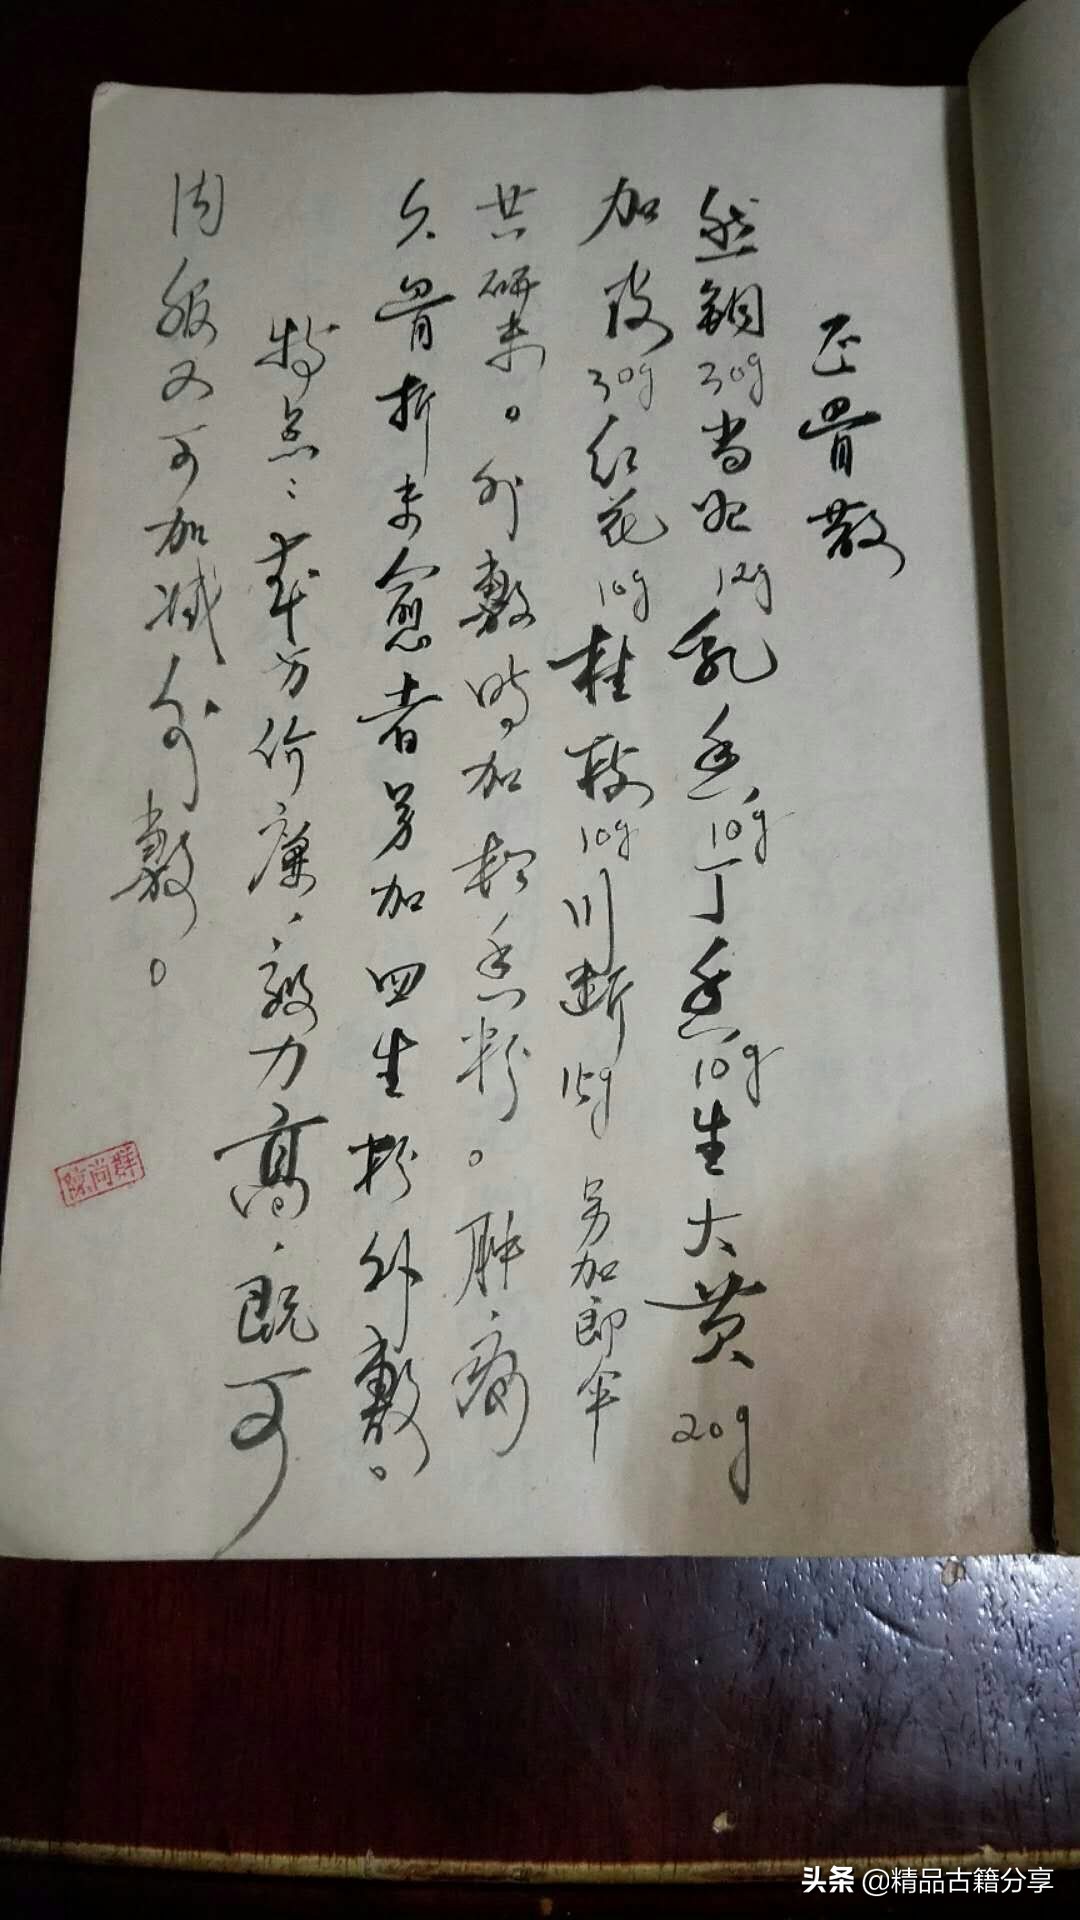 正骨散
然铜30g当归12g乳香10g丁香10g生大黄20g
加皮30g红花10g桂枝10g川断15g 另加即伞
共研末。外敷时加松香粉。肿、痛
久骨折未愈者另加四生粉外敷。
特点：本方价廉、效力高、既可
内服又可加减外敷。
陈尚群
头条@精品古籍分享